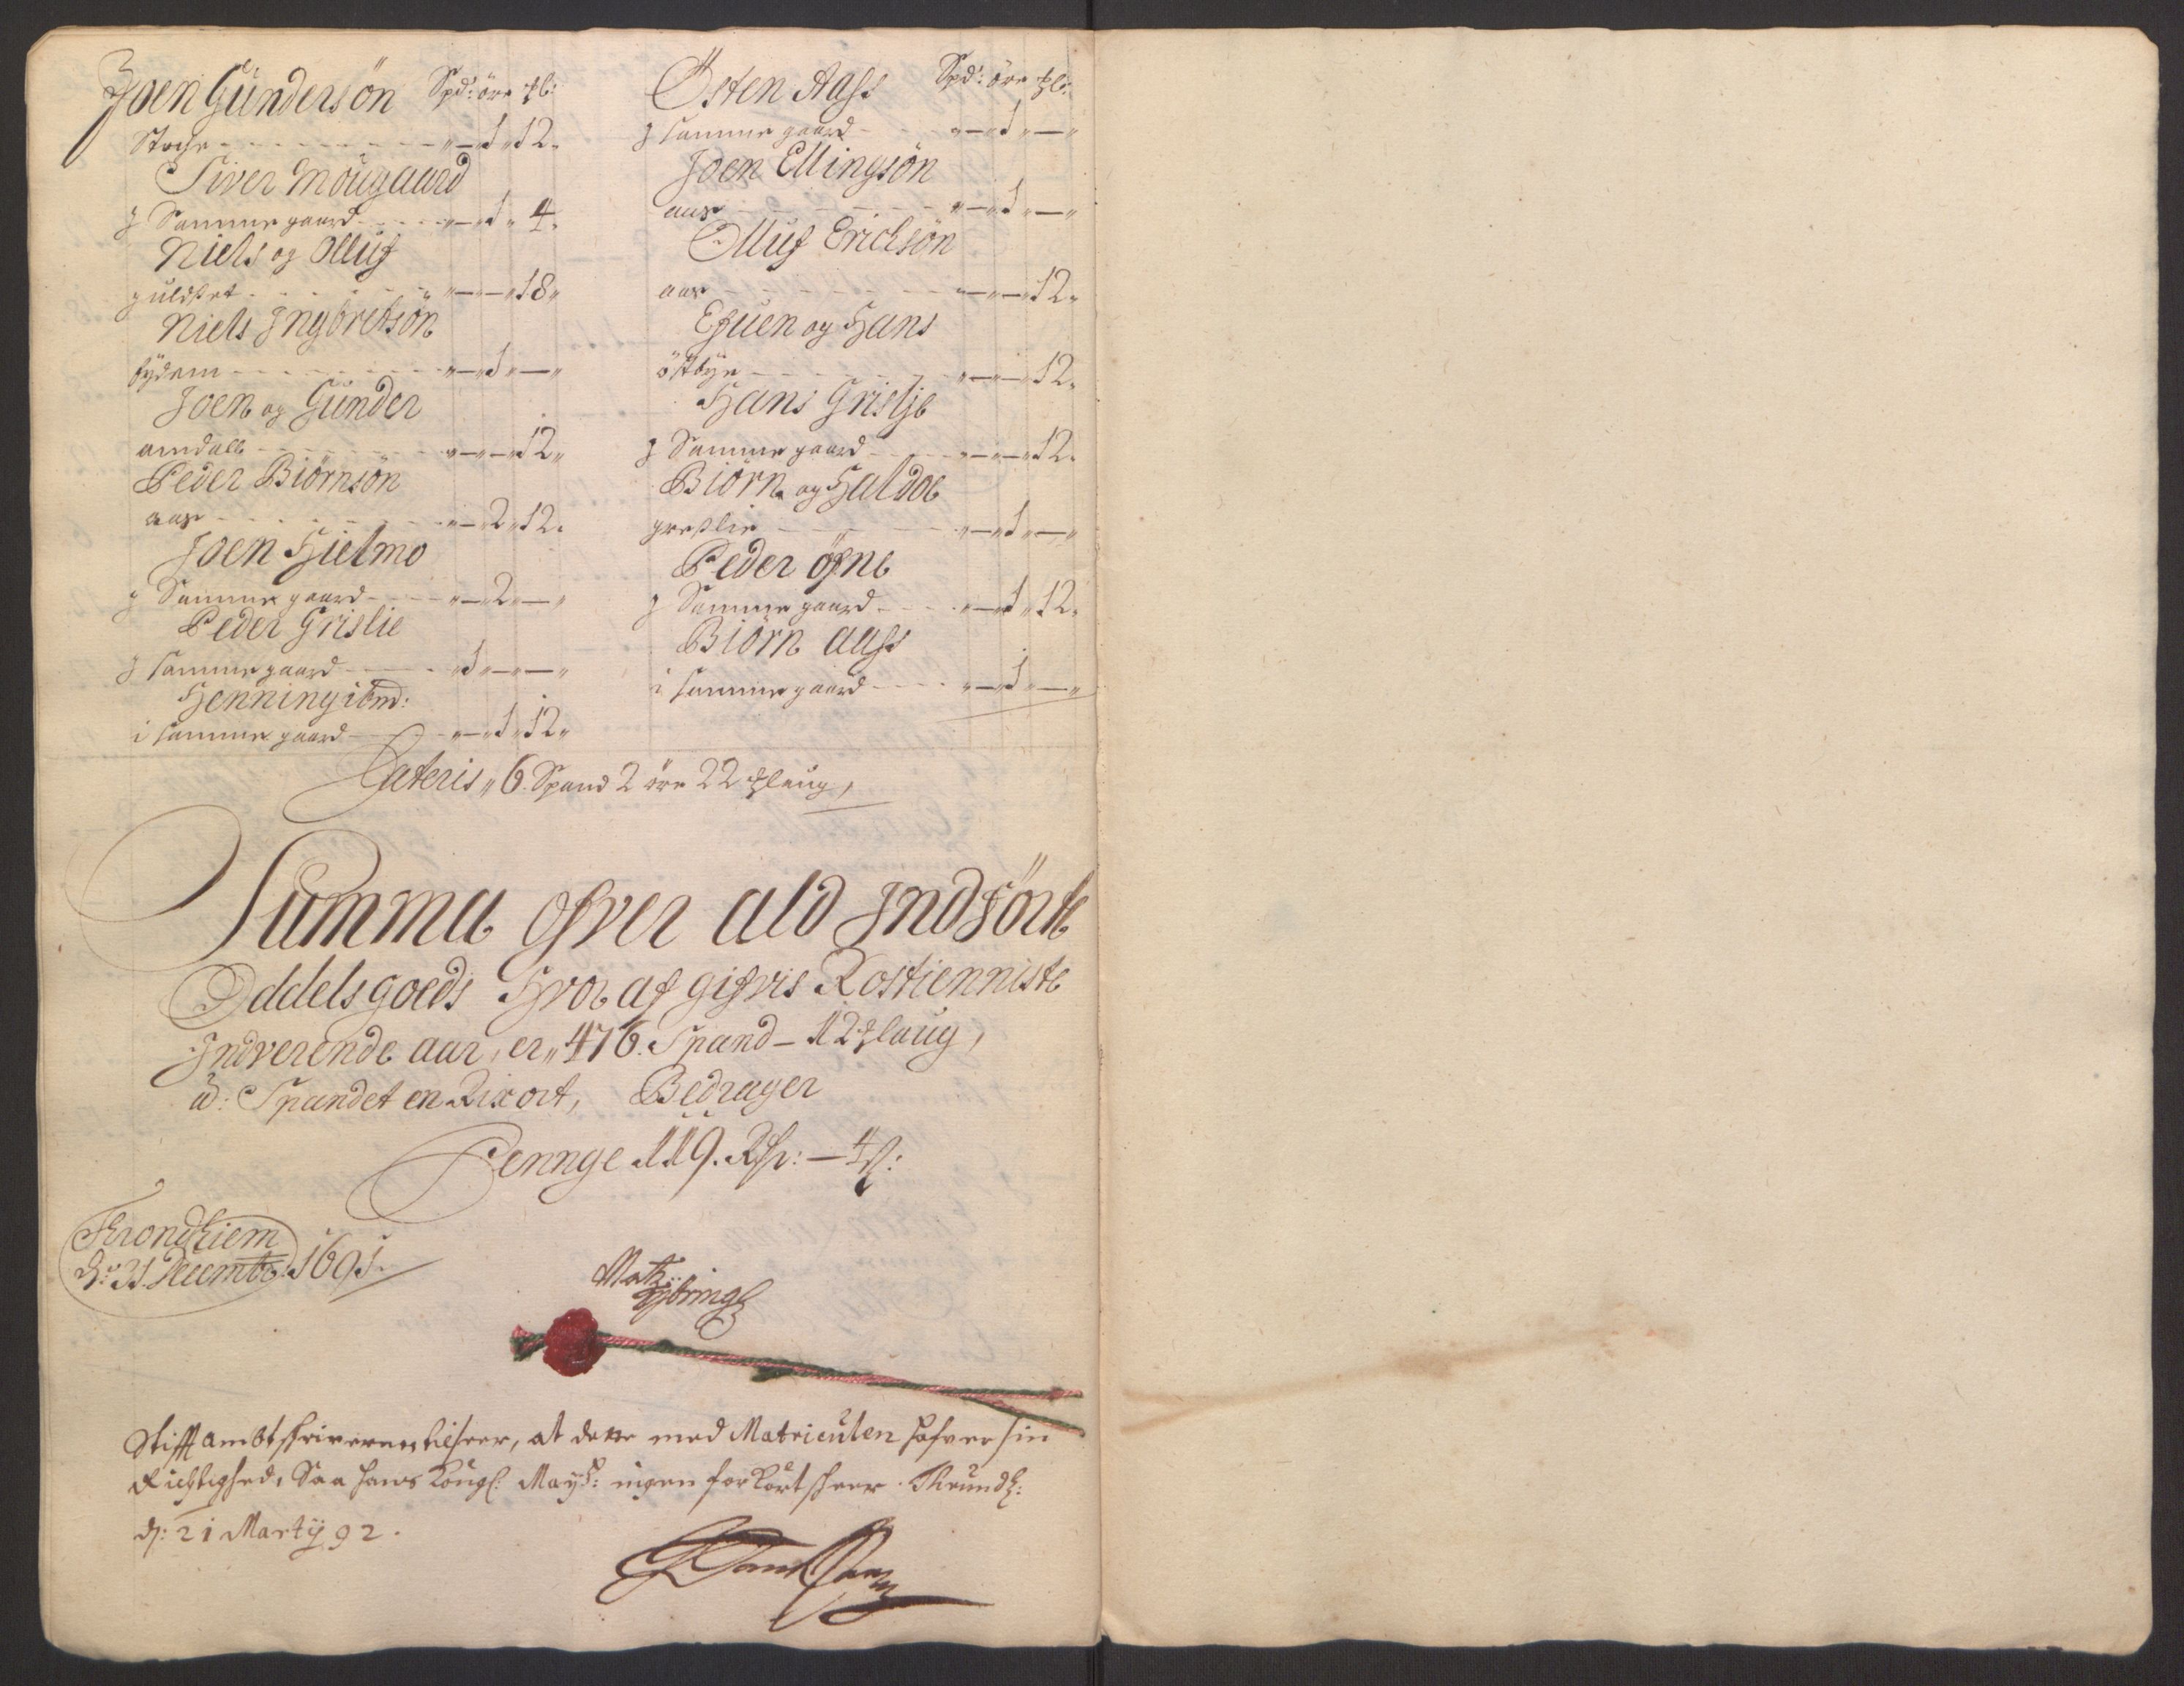 Joen Gündersön Spd: öre ℔:
Stoche - - - "—"1"12"
Siver Mougaard
J Samme gaard - - - "—"1"4"
Niels og Olluf
guldset - - - "—"—"18"
Niels Jngbretsön
Joen og Günder
amdall - - - "—"—"12"
Peder Biörnsön
aas - - - "—"2"12"
Joen Hielmo
J Samme gaard - - - "—"2"—"
Peder Grislie
J samme gaard - - - "1"—"—"
Henning ibnd:
i samme gaard - - - "—"1"12"
Östen Aass Spd: öre ℔:
J samme gaard - - - "—"1"—"
Joen Ellingsön
aas - - - "—"1"—"
Olluf Erichsön
aas - - - "—"—"12"
Efuen og Hans
östbye - - - "—"—"12"
Hans Grislie
J Samme gaard - - - "—"—"12"
Biörn og Haldor
greslie - - - "—"1"—"
Peder öfne
J Samme gaard - - - "—"1"12"
Biörn aass
i samme gaard - - - "—"1"—"
Lateris "6 Spand 2 öre 22 ℔laug,
Summa ofver ald Jndförte
Oddelsgoeds Hvor af gifvis Rostienniste
Jndverende aar, er "476 Spand — 12 ℔laug,
a: Spandet en Rixort, Bedrager
Pennge 119. Rdr: — 4 s:
Throndhiem
d: 31. Decembr: 1691.
Stifft ambtskriveren
at dette med Matriculen hafver sin
Richtighed, Saa hans Kongl: Mayt: ingen forkort skeer. Thrundh:
d: 21 Martij 92.